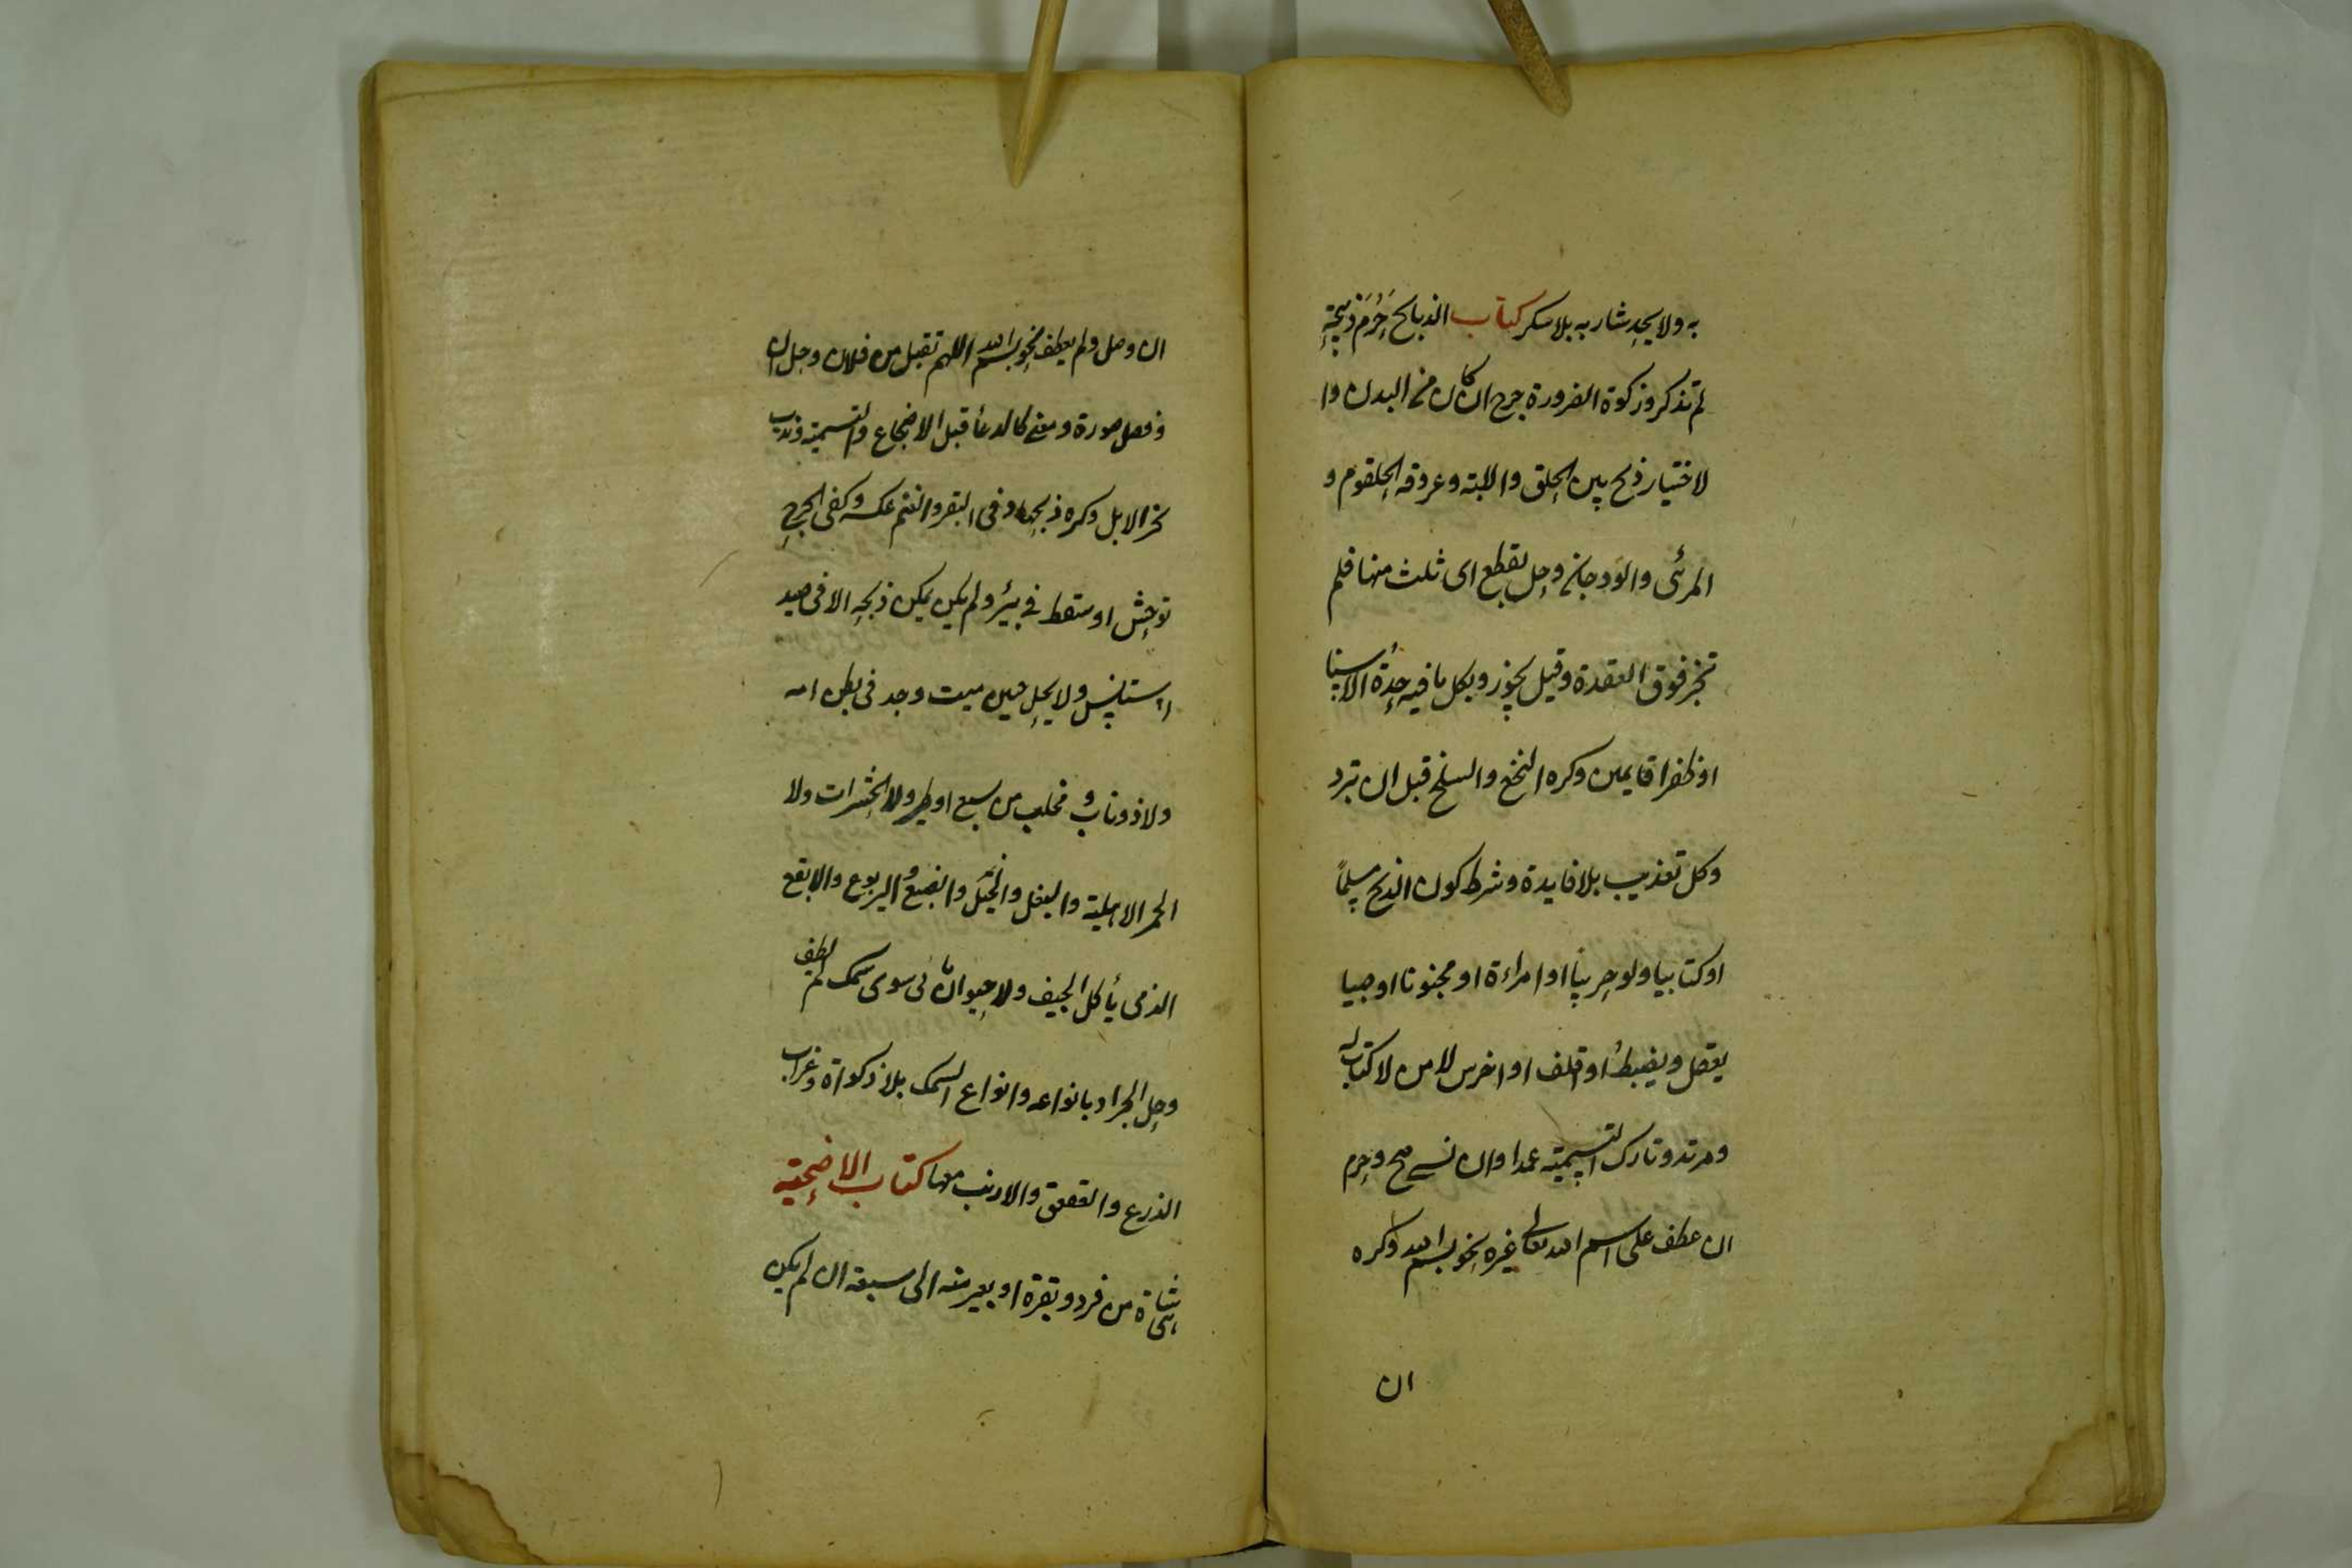 به ولا يحد شاربه بلا سكر كتاب الذبايح حرم ذبيحة
لم تذكر وزكوة الضرورة جرح ان كان من البدن وا
لاختيار ذبح بين الحلق والابته وعروقه الحلقوم و
المرئى والودجان وحل بقطع اى ثلث منها فلم
تجز فوق العقدة وقيل يجوز وبكل ما فيه حدة الاسنا
او ظفرا قايمين وكره النخع والسلخ قبل ان تبرد
وكل تعذيب بلا فايدة وشرط كون الذبح مسلماً
او كتابيا ولو حربياً او امراءة او مجنونا او صبيا
يعقل ويضبط او اقلف او اخرس لا من لا كتاب له
ومرتد وتارك التسمية عمدا وان نسى صح وحرم
ان عطف على اسم الله تعالى غيره نحو بسم الله وكره
ان
ان وصل ولم يعطف نحو بسم الله اللهم تقبل من فلان وحل ان
وفصل صورة ومعنى كالدعأ قبل الاضجاع والتسمية وندب
نحر الابل وكره ذبحها وفى البقر والغنم عكسه وكفى الجرح
توحش او سقط فى بئر ولم يكن يمكن ذبحه الا فى صيد
استانس ولا يحل جنين ميت وجد فى بطن امه
ولا ذو ناب و مخلب من سبع او طير ولا الحشرات ولا
الحمر الاهلية والبغل والخيل والضبع و اليربوع والابقع
الذى يأكل الجيف ولا حيوان مائى سوى سمك لم يطف
وحل الجراد بانواعه وانواع السمك بلا ذكواة وغراب
الزرع والعقعق والارنب معها كتاب الاضحية
هى شاة من فرد وبقرة او بعير منه الى سبعة ان لم يكن